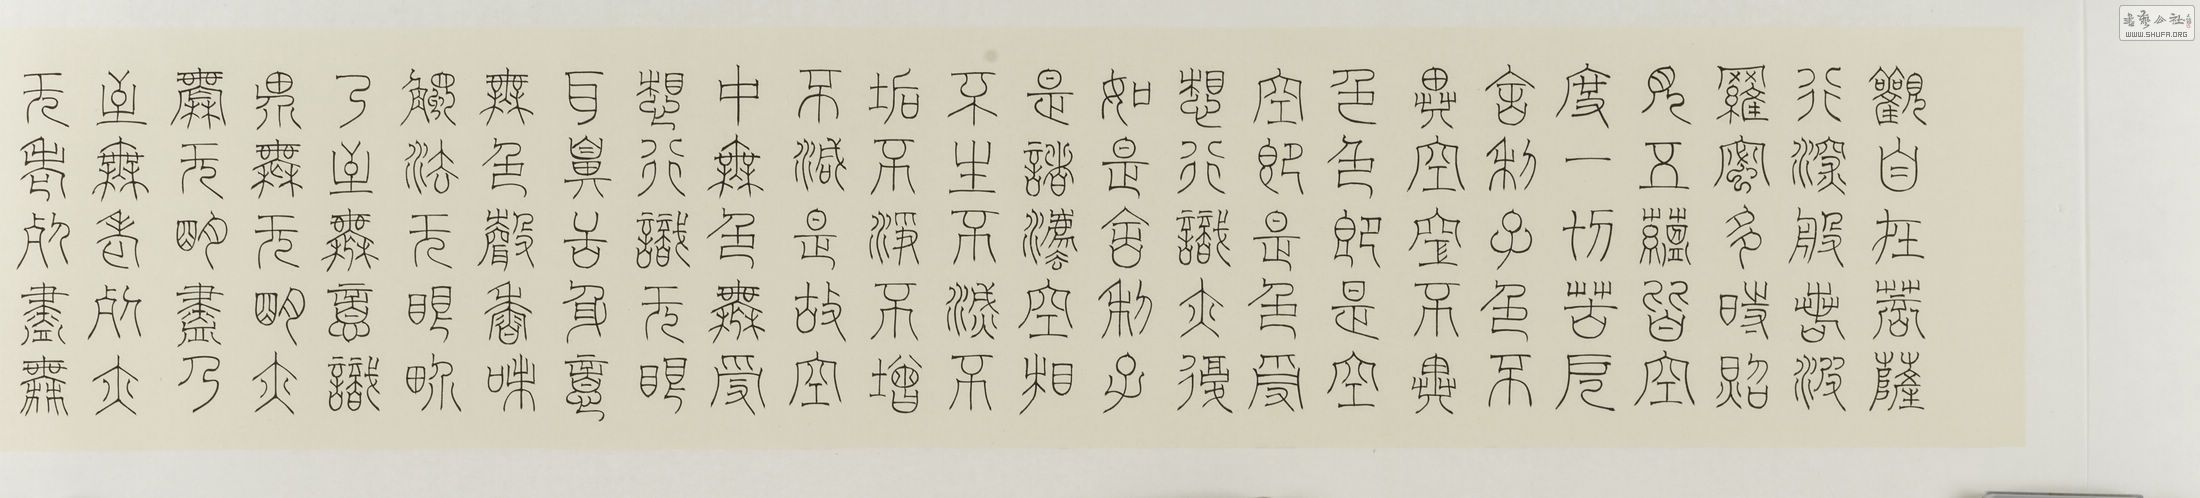 觀自在菩薩
行深般若波
羅蜜多時照
見五蘊皆空
度一切苦厄
舍利子色不
異空空不異
色色即是空
空即是色受
想行識亦復
如是舍利子
是諸灋空相
不生不滅不
垢不淨不增
不減是故空
中無色無受
想行識无眼
耳鼻舌身意
無色聲香味
觸法无眼界
乃至無意識
界無无明亦
無无明盡乃
至無老死亦
无老死盡無
書藝公社
WWW.SHUFA.ORG